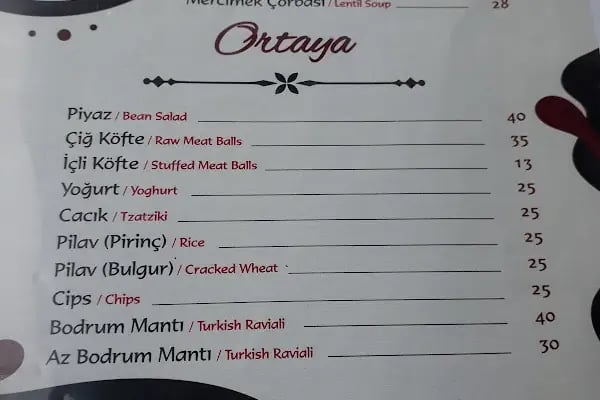 Mercimek Çorbası / Lentil Soup 28
Ortaya
Piyaz / Bean Salad 40
Çiğ Köfte / Raw Meat Balls 35
İçli Köfte / Stuffed Meat Balls 13
Yoğurt / Yoghurt 25
Cacık / Tzatziki 25
Pilav (Pirinç) / Rice 25
Pilav (Bulgur) / Cracked Wheat 25
Cips / Chips 25
Bodrum Mantı / Turkish Raviali 40
Az Bodrum Mantı / Turkish Raviali 30